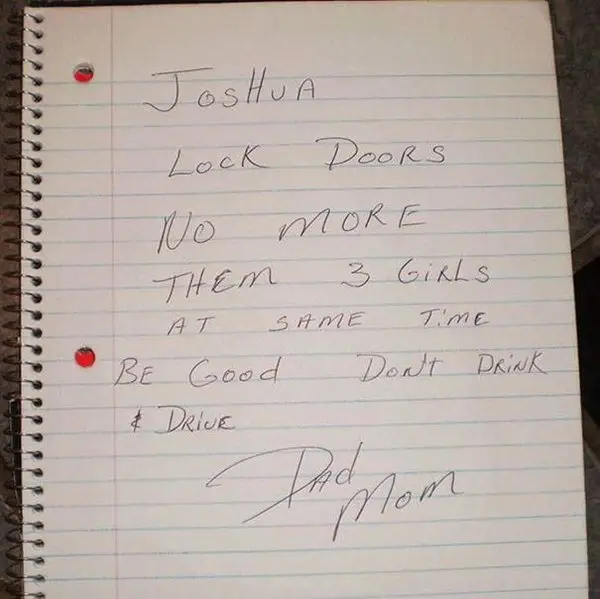 JOSHUA
LOCK DOORS
NO MORE
THEM 3 GIRLS
AT SAME TIME
BE GOOD DON'T DRINK
& DRIVE
DAd
MOM